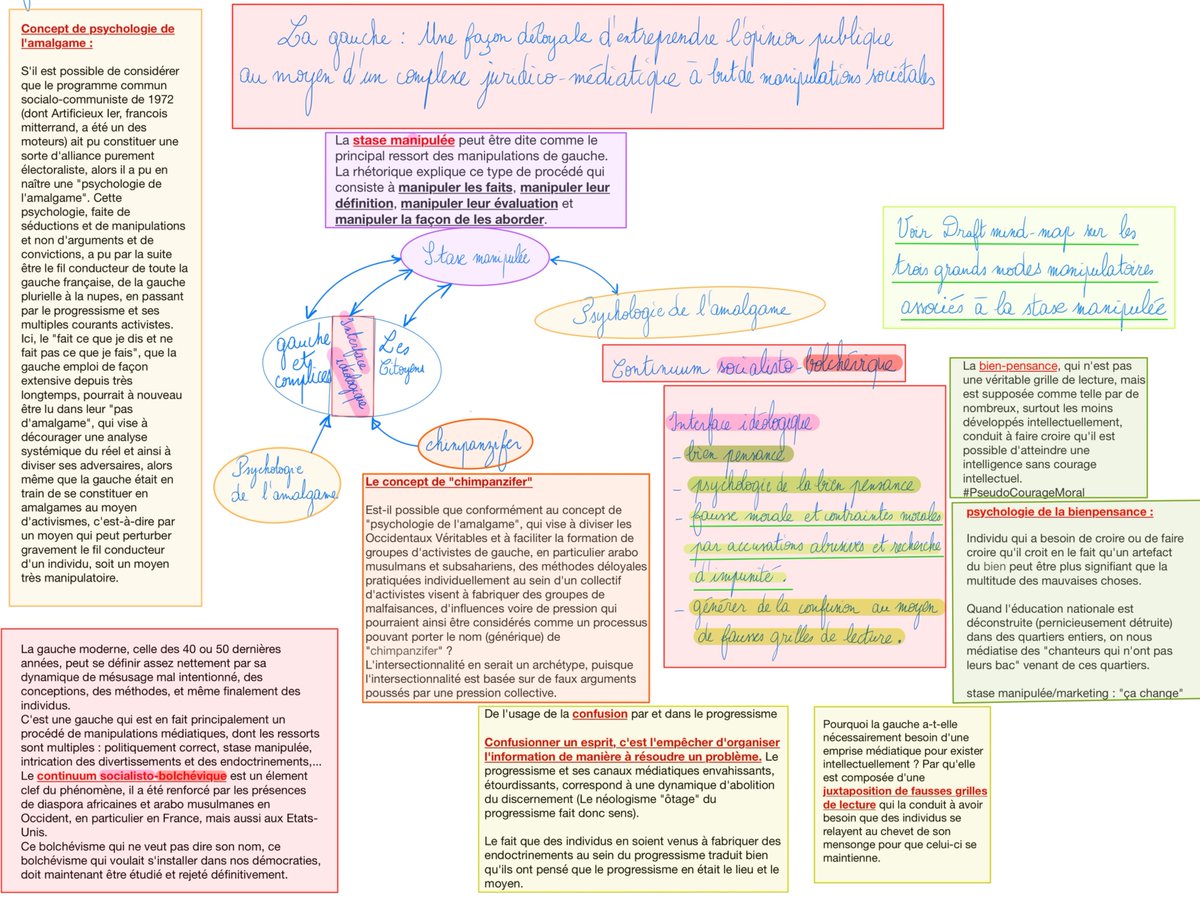 La gauche : Une façon déloyale d'entreprendre l'opinion publique
au moyen d'un complexe juridico-médiatique à but de manipulations sociétales
Concept de psychologie de
l'amalgame :
S'il est possible de considérer
que le programme commun
socialo-communiste de 1972
(dont Artificieux Ier, francois
mitterrand, a été un des
moteurs) ait pu constituer une
sorte d'alliance purement
électoraliste, alors il a pu en
naître une "psychologie de
l'amalgame". Cette
psychologie, faite de
séductions et de manipulations
et non d'arguments et de
convictions, a pu par la suite
être le fil conducteur de toute la
gauche française, de la gauche
plurielle à la nupes, en passant
par le progressisme et ses
multiples courants activistes.
Ici, le "fait ce que je dis et ne
fait pas ce que je fais", que la
gauche emploi de façon
extensive depuis très
longtemps, pourrait à nouveau
être lu dans leur "pas
d'amalgame", qui vise à
décourager une analyse
systémique du réel et ainsi à
diviser ses adversaires, alors
même que la gauche était en
train de se constituer en
amalgames au moyen
d'activismes, c'est-à-dire par
un moyen qui peut perturber
gravement le fil conducteur
d'un individu, soit un moyen
très manipulatoire.
La stase manipulée peut être dite comme le
principal ressort des manipulations de gauche.
La rhétorique explique ce type de procédé qui
consiste à manipuler les faits, manipuler leur
définition, manipuler leur évaluation et
manipuler la façon de les aborder.
Stase manipulée
Psychologie de l'amalgame
gauche
et
complices
Interface
idéologique
Les
Citoyens
Psychologie
de l'amalgame
chimpanzifer
Voir Draft mind-map sur les
trois grands modes manipulatoires
associés à la stase manipulée
Continuum socialisto-bolchévique
Interface idéologique
- bien pensance
- psychologie de la bien pensance
- fausse morale et contraintes morales
par accusations abusives et recherche
d'impunité.
- générer de la confusion au moyen
de fausses grilles de lecture.
La bien-pensance, qui n'est pas
une véritable grille de lecture, mais
est supposée comme telle par de
nombreux, surtout les moins
développés intellectuellement,
conduit à faire croire qu'il est
possible d'atteindre une
intelligence sans courage
intellectuel.
#PseudoCourageMoral
psychologie de la bienpensance :
Individu qui a besoin de croire ou de faire
croire qu'il croit en le fait qu'un artefact
du bien peut être plus signifiant que la
multitude des mauvaises choses.
Quand l'éducation nationale est
déconstruite (pernicieusement détruite)
dans des quartiers entiers, on nous
médiatise des "chanteurs qui n'ont pas
leurs bac" venant de ces quartiers.
stase manipulée/marketing : "ça change"
Le concept de "chimpanzifer"
Est-il possible que conformément au concept de
"psychologie de l'amalgame", qui vise à diviser les
Occidentaux Véritables et à faciliter la formation de
groupes d'activistes de gauche, en particulier arabo
musulmans et subsahariens, des méthodes déloyales
pratiquées individuellement au sein d'un collectif
d'activistes visent à fabriquer des groupes de
malfaisances, d'influences voire de pression qui
pourraient ainsi être considérés comme un processus
pouvant porter le nom (générique) de
"chimpanzifer" ?
L'intersectionnalité en serait un archétype, puisque
l'intersectionnalité est basée sur de faux arguments
poussés par une pression collective.
La gauche moderne, celle des 40 ou 50 dernières
années, peut se définir assez nettement par sa
dynamique de mésusage mal intentionné, des
conceptions, des méthodes, et même finalement des
individus.
C'est une gauche qui est en fait principalement un
procédé de manipulations médiatiques, dont les ressorts
sont multiples : politiquement correct, stase manipulée,
intrication des divertissements et des endoctrinements,...
Le continuum socialisto-bolchévique est un élement
clef du phénomène, il a été renforcé par les présences
de diaspora africaines et arabo musulmanes en
Occident, en particulier en France, mais aussi aux Etats-
Unis.
Ce bolchévisme qui ne veut pas dire son nom, ce
bolchévisme qui voulait s'installer dans nos démocraties,
doit maintenant être étudié et rejeté définitivement.
De l'usage de la confusion par et dans le progressisme
Confusionner un esprit, c'est l'empêcher d'organiser
l'information de manière à résoudre un problème. Le
progressisme et ses canaux médiatiques envahissants,
étourdissants, correspond à une dynamique d'abolition
du discernement (Le néologisme "ôtage" du
progressisme fait donc sens).
Le fait que des individus en soient venus à fabriquer des
endoctrinements au sein du progressisme traduit bien
qu'ils ont pensé que le progressisme en était le lieu et le
moyen.
Pourquoi la gauche a-t-elle
nécessairement besoin d'une
emprise médiatique pour exister
intellectuellement ? Par qu'elle
est composée d'une
juxtaposition de fausses grilles
de lecture qui la conduit à avoir
besoin que des individus se
relayent au chevet de son
mensonge pour que celui-ci se
maintienne.